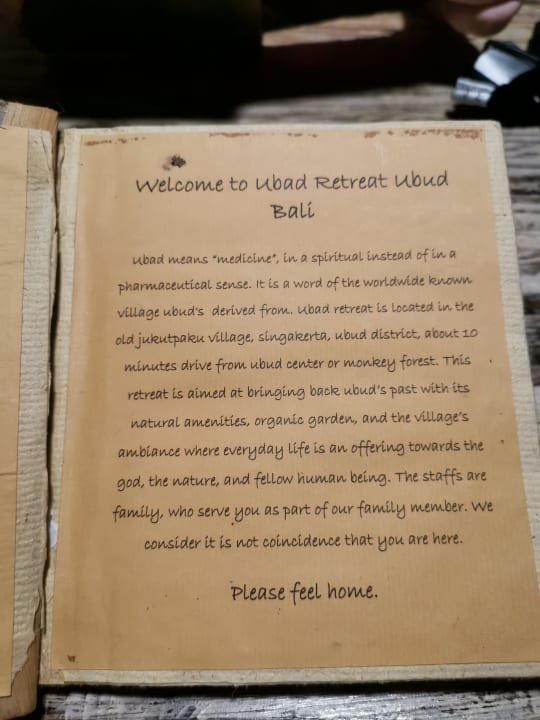 Welcome to Ubad Retreat Ubud
Bali
Ubad means "medicine", in a spiritual instead of in a
pharmaceutical sense. It is a word of the worldwide known
village ubud's derived from. Ubad retreat is located in the
old jukutpaku village, singakerta, ubud district, about 10
minutes drive from ubud center or monkey forest. This
retreat is aimed at bringing back ubud's past with its
natural amenities, organic garden, and the village's
ambiance where everyday life is an offering towards the
god, the nature, and fellow human being. The staffs are
family, who serve you as part of our family member. We
consider it is not coincidence that you are here.
Please feel home.